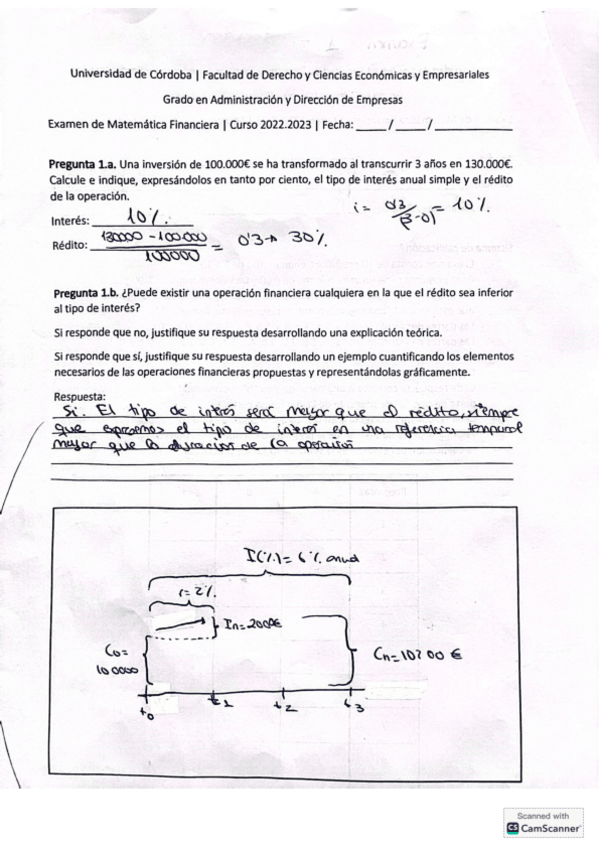 Universidad de Córdoba | Facultad de Derecho y Ciencias Económicas y Empresariales
Grado en Administración y Dirección de Empresas
Examen de Matemática Financiera | Curso 2022.2023 | Fecha: _____/ _____/ _____________
Pregunta 1.a. Una inversión de 100.000€ se ha transformado al transcurrir 3 años en 130.000€.
Calcule e indique, expresándolos en tanto por ciento, el tipo de interés anual simple y el rédito
de la operación.
i = 0'3/(3-0) = 10%.
Interés: 10%.
Rédito: 130000 - 100.000 / 100000 = 0'3 → 30%.
Pregunta 1.b. ¿Puede existir una operación financiera cualquiera en la que el rédito sea inferior
al tipo de interés?
Si responde que no, justifique su respuesta desarrollando una explicación teórica.
Si responde que sí, justifique su respuesta desarrollando un ejemplo cuantificando los elementos
necesarios de las operaciones financieras propuestas y representándolas gráficamente.
Respuesta:
Si. El tipo de interés será mayor que el rédito, siempre
que expresemos el tipo de interés en una referencia temporal
mayor que la duración de la operación
I(%)= 6% anual
r= 2%.
In=2000€
Co=
100000
Cn=102 00 €
to
t1
t2
t3
Scanned with
CS CamScanner